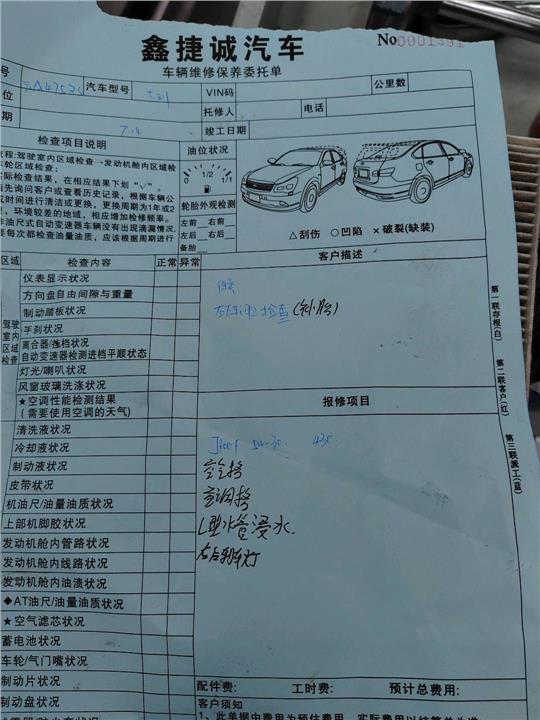 鑫捷诚汽车
No0001331
车辆维修保养委托单
号
汽车型号
VIN码
公里数
位
托修人
电话
期
7.18
竣工日期
检查项目说明
油位状况
程:驾驶室内区域检查→发动机舱内区域检
车轮区域检查;
实际检查结果,在相应结果下划"√"。
先询问客户或查看历史记录,根据车辆公
时间进行清洁或更换,更换周期为1年或2
,环境较差的地域,相应增加检修频率。
油尺式自动变速器车辆没有出现泄漏情况,
要每次都检查油量油质,应该根据周期进行
0 1/2 1/1
轮胎外观检测
左前 右前
左后 右后
备胎
△刮伤 ○凹陷 ×破裂(缺装)
区域 检查内容 正常 异常
客户描述
仪表显示状况
方向盘自由间隙与重量
制动踏板状况
手刹状况
离合器/连档状况
自动变速器检测进档平顺状态
灯光/喇叭状况
风窗玻璃洗涤状况
★空调性能检测结果
(需要使用空调的天气)
驾驶
室内
区域
检查
保养
检查(补胎)
第一联存根(白)
第二联客户(红)
第三联派工(蓝)
报修项目
清洗液状况
冷却液状况
制动液状况
皮带状况
机油尺/油量油质状况
上部机脚胶状况
发动机舱内管路状况
发动机舱内线路状况
发动机舱内油渍状况
◆AT油尺/油量油质状况
★空气滤芯状况
蓄电池状况
车轮/气门嘴状况
制动片状况
制动盘状况
5W-30
L型水管浸水
左后刹车灯
配件费: 工时费: 预计总费用:
客户须知